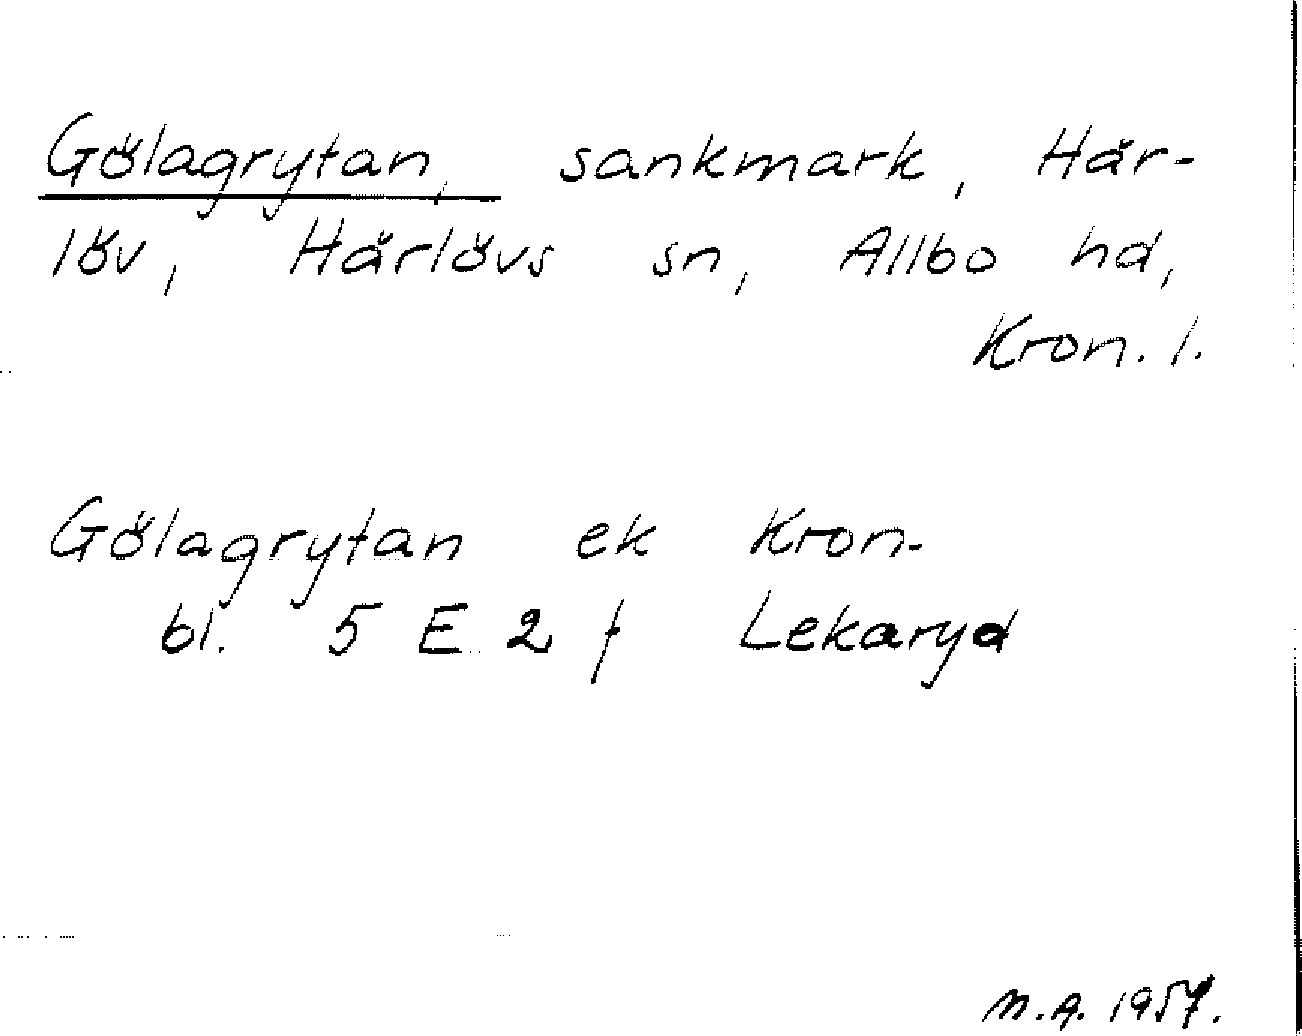 Gölagrytan, sankmark, Här-
löv, Härlövs sn, Allbo hd,
Kron. l.
Gölagrytan ek Kron-
bl. 5 E 2 f Lekaryd
M.A. 1957.